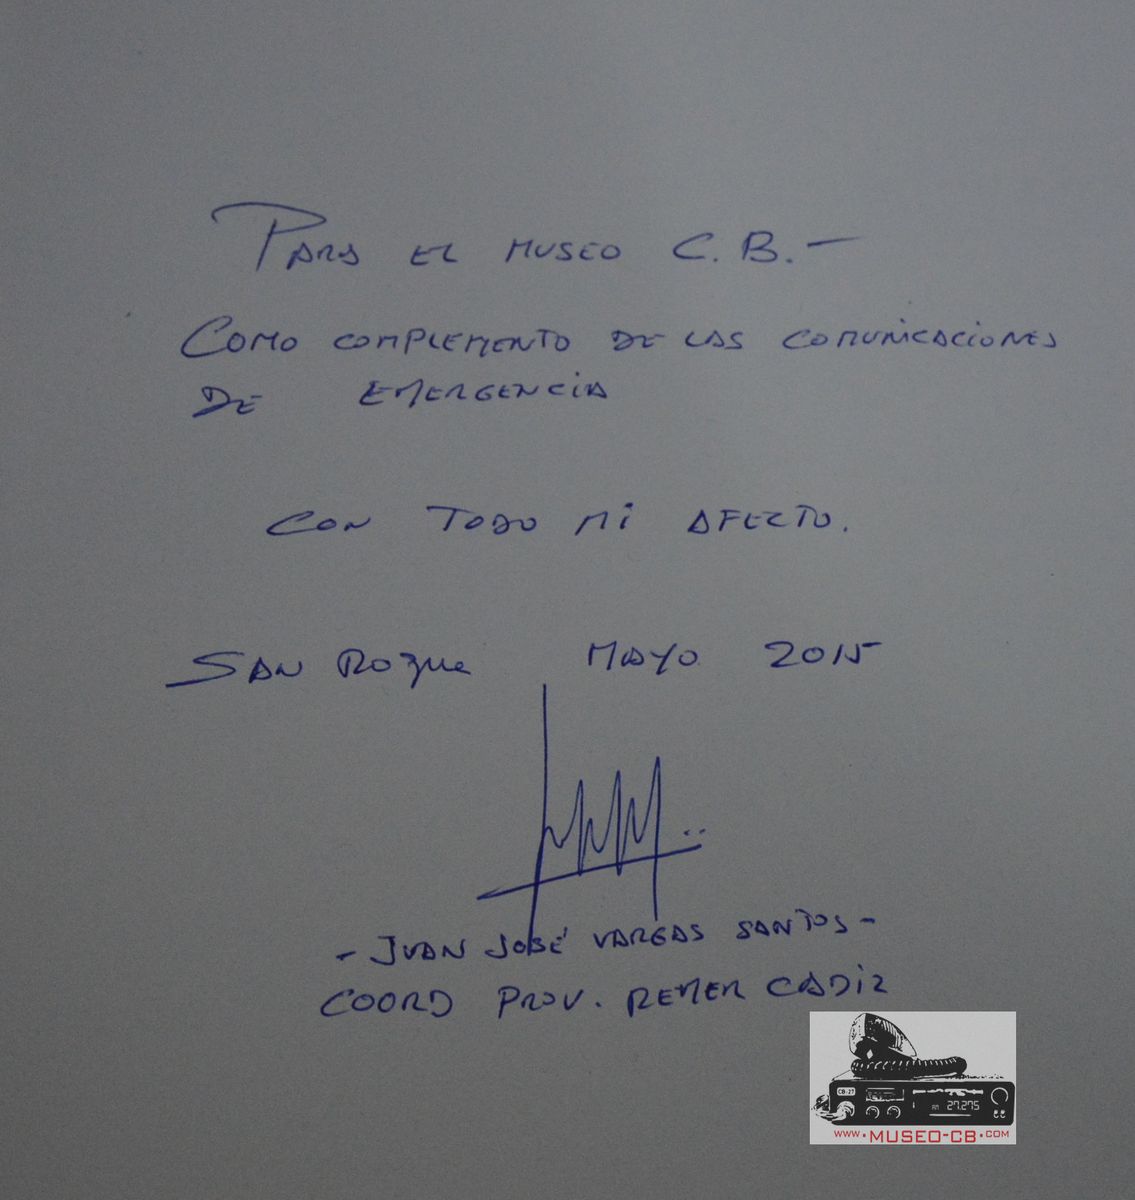 PARA EL MUSEO C.B.-
COMO COMPLEMENTO DE LAS COMUNICACIONES
DE EMERGENCIA
CON TODO MI AFECTO.
SAN ROQUE MAYO 2015
- JUAN JOSÉ VARGAS SANTOS -
COORD PROV. REMER CADIZ
CB-27
27.275
WWW.MUSEO-CB.COM